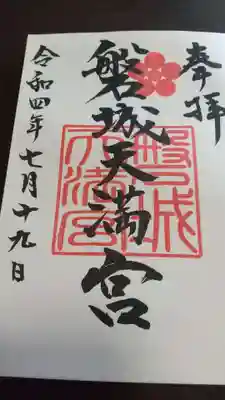 奉拝
磐城天満宮
令和四年七月十九日
磐城天満宮